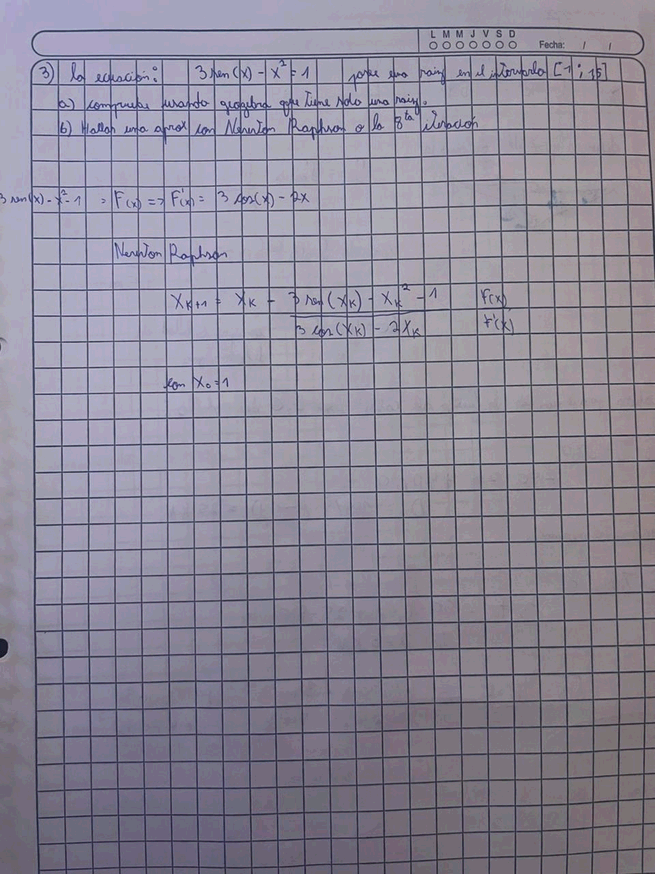 L M M J V S D
Fecha: / /
3) la ecuación: 3 sen(x) - x² = 1 posee una raiz en el intervalo [1 ; 1,5]
a) comprueba usando geogebra que tiene solo una raiz.
b) Hallar una aprox con Newton Raphson a la 8ta iteración
3 sen(x) - x² - 1 = F(x) => F'(x) = 3 cos(x) - 2x
Newton Raphson
X_{K+1} = X_K - 3 sen(X_K) - X_K² - 1 F(x)
3 cos(X_K) - 2X_K F'(x)
con X₀ = 1